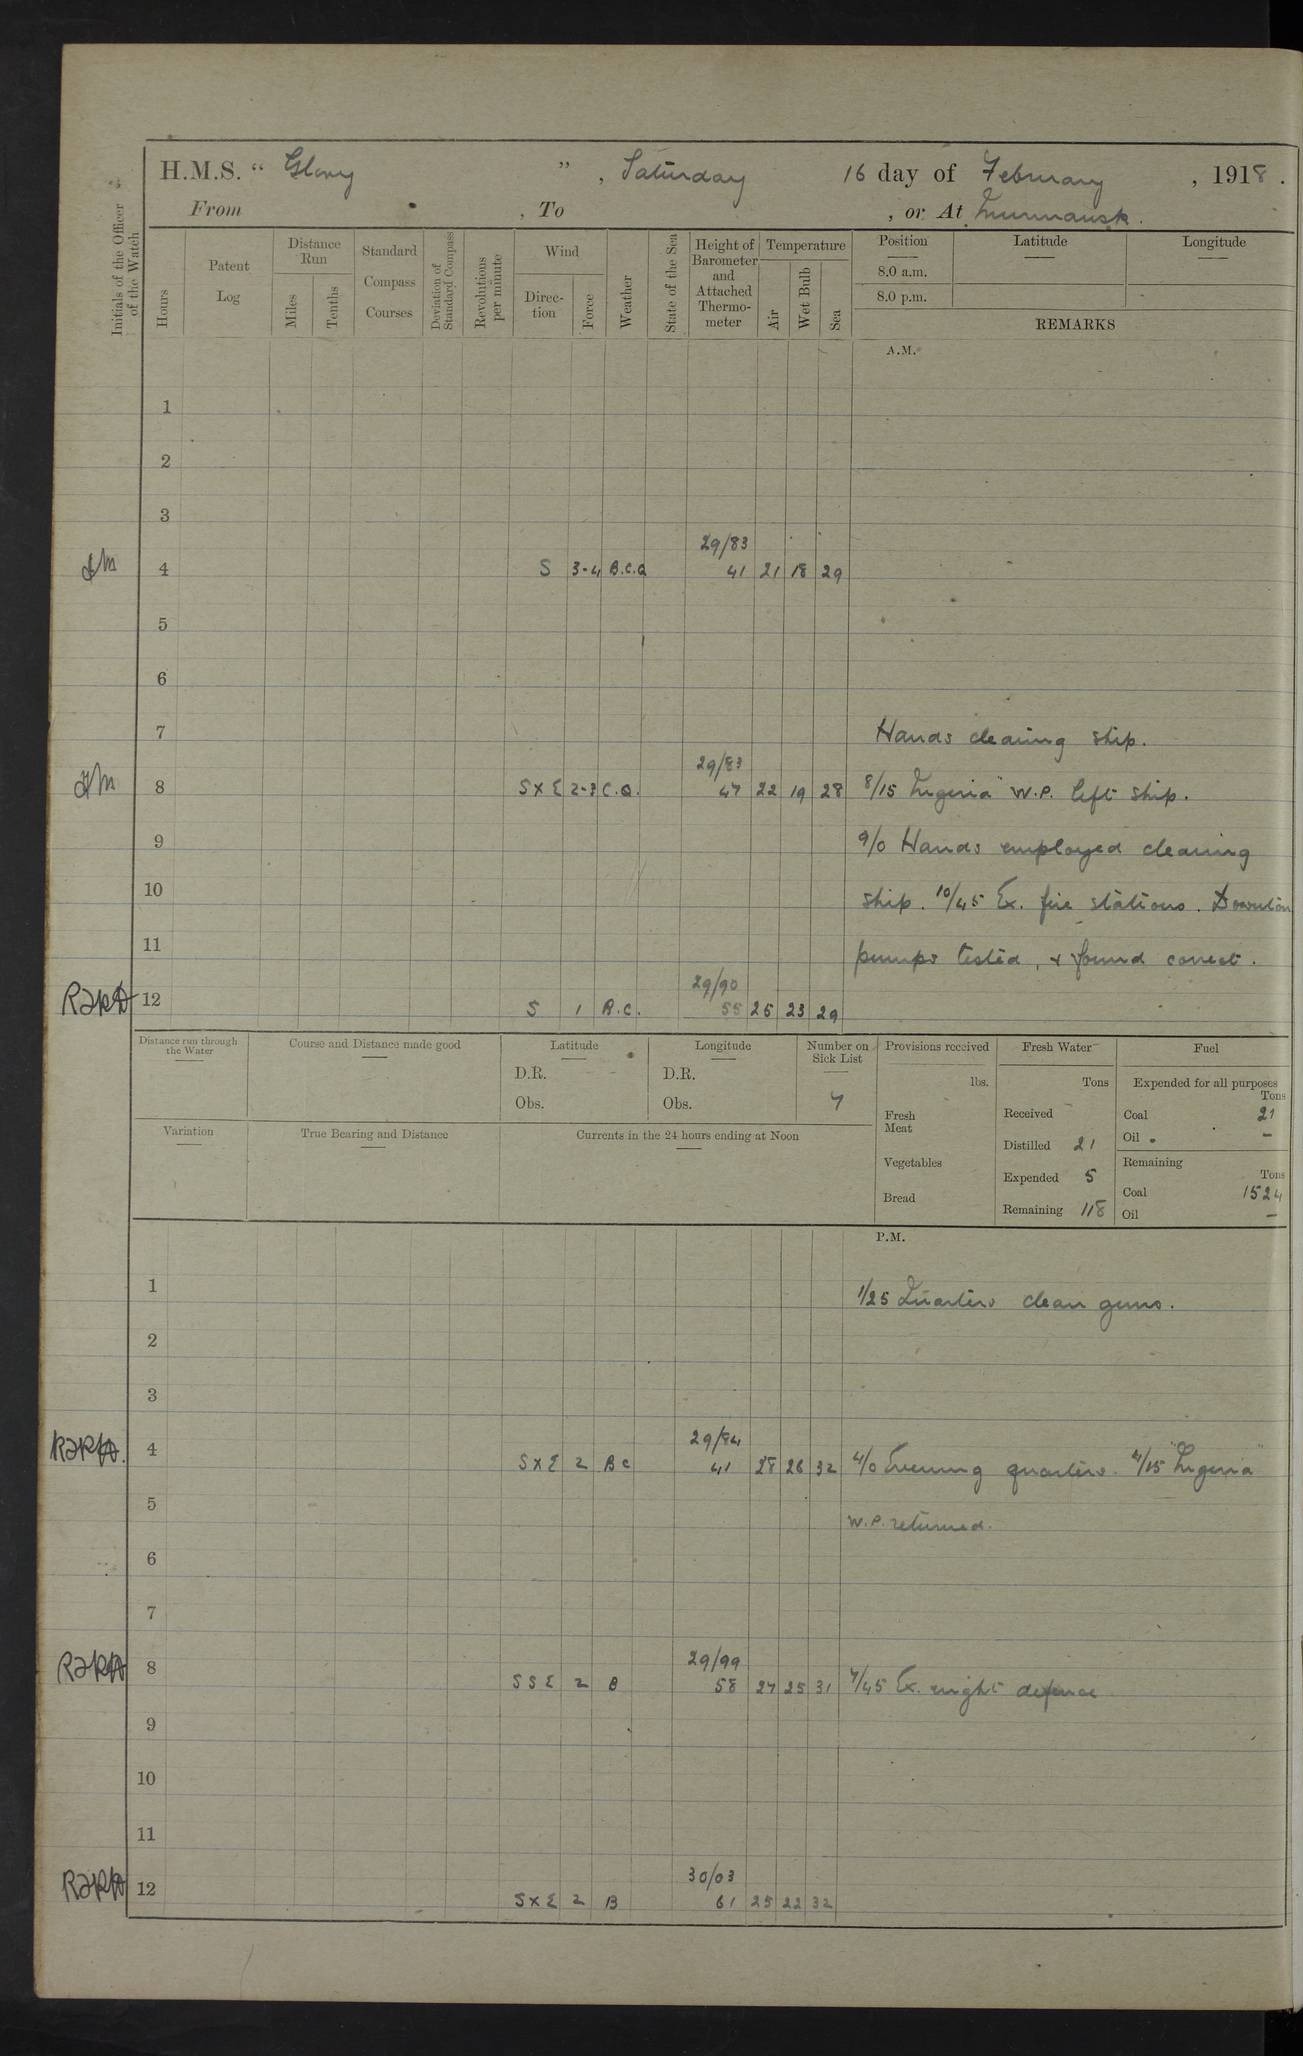 H.M.S. “ Glory ”, Saturday 16 day of February, 1918.
From , To , or At Murmansk.
Initials of the Officer of the Watch
Hours
Patent Log
Distance Run
Miles
Tenths
Standard Compass Courses
Deviation of Standard Compass
Revolutions per minute
Wind
Direction
Force
Weather
State of the Sea
Height of Barometer and Attached Thermometer
Temperature
Air
Wet Bulb
Sea
Position Latitude Longitude
8.0 a.m.
8.0 p.m.
REMARKS
A.M.
1
2
3
29/83
4 S 3-4 B.C.Q 41 21 18 29
5
6
7 Hands cleaning ship.
29/83
8 S X E 2-3 C.Q. 47 22 19 28 8/15 "Nigeria" W.P. left ship.
9 9/0 Hands employed cleaning
10 ship. 10/45 Ex. fire stations. Downton
11 pumps tested, & found correct.
29/90
12 S 1 B.C. 55 25 23 29
Distance run through the Water
Course and Distance made good
Latitude
D.R.
Obs.
Longitude
D.R.
Obs.
Number on Sick List
7
Provisions received
lbs.
Fresh Meat
Vegetables
Bread
Fresh Water
Tons
Received
Distilled 21
Expended 5
Remaining 118
Fuel
Expended for all purposes
Tons
Coal 21
Oil -
Remaining
Tons
Coal 1524
Oil -
Variation
True Bearing and Distance
Currents in the 24 hours ending at Noon
P.M.
1 1/25 Quarters clean guns.
2
3
29/94
4 S X E 2 B C 41 28 26 32 4/0 Evening quarters. 4/15 "Nigeria"
5 W.P. returned.
6
7
29/99
8 S S E 2 B 58 27 25 31 7/45 Ex. night defence
9
10
11
30/03
12 S X E 2 B 61 25 22 32